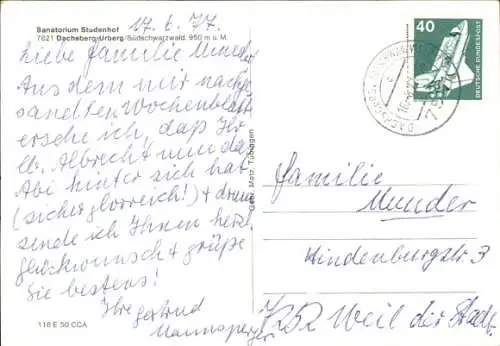 Sanatorium Studenhof
7821 Dachsberg-Urberg/Südschwarzwald. 950 m ü. M.
17. 6. 77.
Liebe Familie Munder
Aus dem mir nachge-
sandten Wochenblatt
ersehe ich, daß Ihr
lb. Albrecht nun das
Abi hinter sich hat
(sicher glorreich!) + drum
sende ich Ihnen herzl.
Glückwunsch + grüße
Sie bestens!
Ihre Gertrud
Mannsperger
118 E 50 CCA
Gebr. Metz, Tübingen
40
DEUTSCHE BUNDESPOST
Familie
Munder
Hindenburgstr. 3
7252 Weil der Stadt